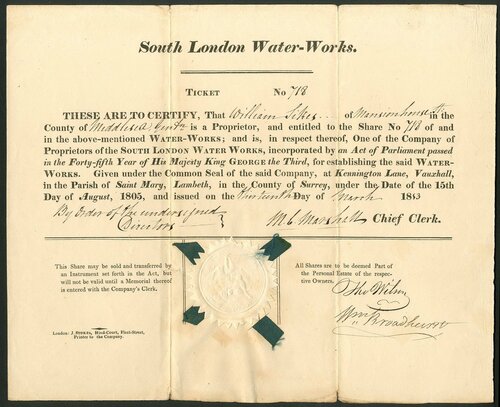 South London Water-Works.
TICKET No 718
THESE ARE TO CERTIFY, That William Sikes of Mansionhouse St. in the
County of Middlesex Gentn is a Proprietor, and entitled to the Share No 718 of and
in the above-mentioned WATER-WORKS; and is, in respect thereof, One of the Company of
Proprietors of the SOUTH LONDON WATER WORKS, incorporated by an Act of Parliament passed
in the Forty-fifth Year of His Majesty King GEORGE the Third, for establishing the said WATER-
WORKS. Given under the Common Seal of the said Company, at Kennington Lane, Vauxhall,
in the Parish of Saint Mary, Lambeth, in the County of Surrey, under the Date of the 15th
Day of August, 1805, and issued on the Day of March 1813
By Order of the undersigned
Directors
Chief Clerk.
This Share may be sold and transferred by
an Instrument set forth in the Act, but
will not be valid until a Memorial thereof
is entered with the Company's Clerk.
All Shares are to be deemed Part of
the Personal Estate of the respec-
tive Owners.
Tho Wilson
Wm Broadhurst
London: J. STOKES, Hind-Court, Fleet-Street,
Printer to the Company.